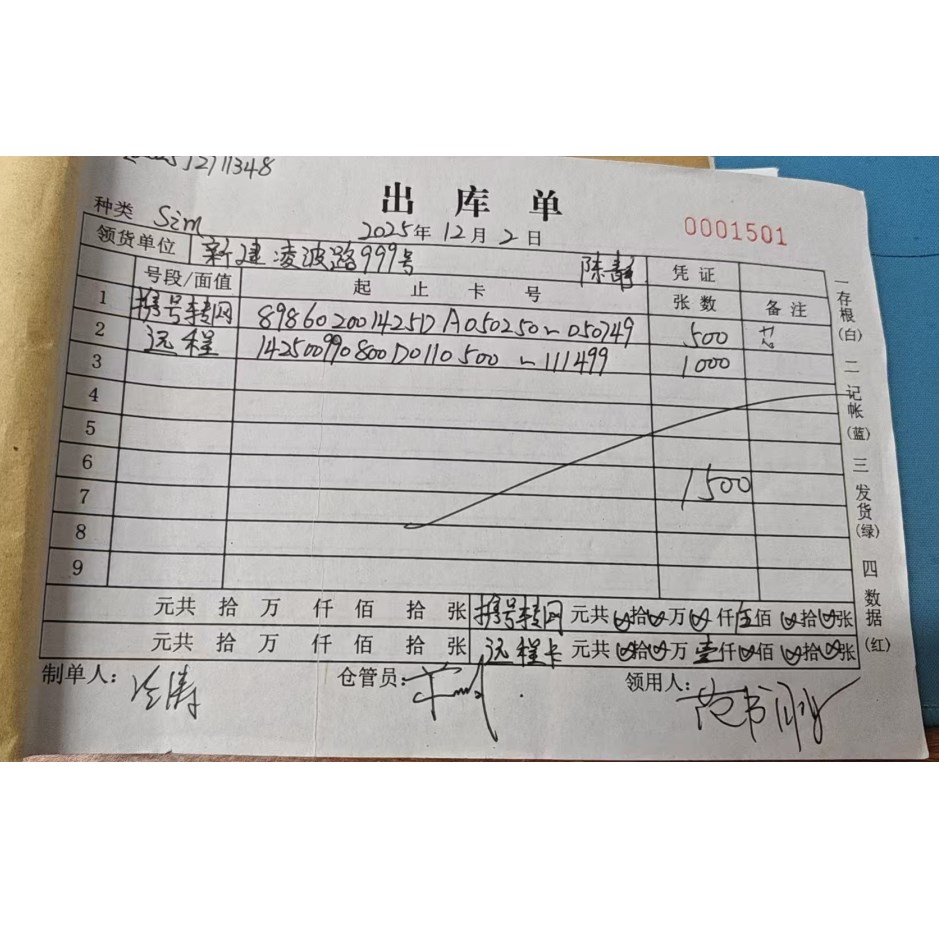 12111348
出库单
0001501
种类 Sim
2025年 12月 2日
领货单位 新建凌波路999号 陈静
凭证
号段/面值 起止卡号 张数 备注
1 携号转网 898602001425D A050250~050749 500
2 远程 142500990800D0110500~111499 1000
3
4
5
6 1500
7
8
9
元共 拾 万 仟 佰 拾 张 携号转网 元共 拾 万 仟伍佰 拾 张
元共 拾 万 仟 佰 拾 张 远程卡 元共 拾 万壹仟 佰 拾 张
制单人: 仓管员: 领用人:
一存根(白) 二记帐(蓝) 三发货(绿) 四数据(红)